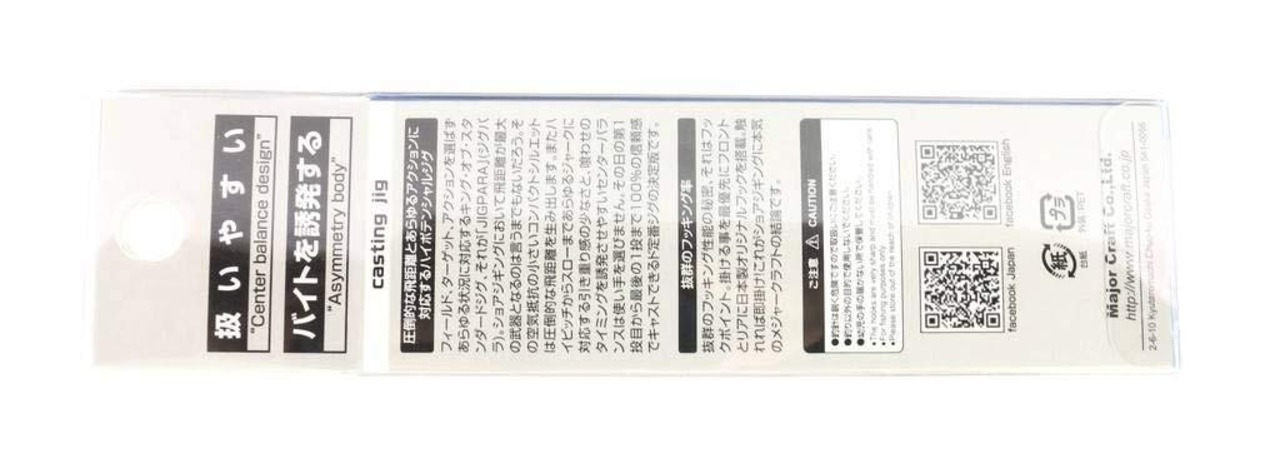 扱いやすい
"Center balance design"
バイトを誘発する
"Asymmetry body"
casting jig
圧倒的な飛距離とあらゆるアクションに
対応するハイポテンシャルジグ
フィールド、ターゲット、アクションを選ばず
あらゆる状況に対応するキング・オブ・スタ
ンダードジグ、それが「JIGPARA」(ジグパ
ラ)。ショアジギングにおいて飛距離が最大
の武器となるのは言うまでもないだろう。そ
の空気抵抗の小さいコンパクトシルエット
は圧倒的な飛距離を生み出します。またハ
イピッチからスローまであらゆるジャークに
対応する引き重り感の少なさと、喰わせの
タイミングを誘発させやすいセンターバラ
ンスは使い手を選びません。その日の第1
投目から最後の1投まで100%の信頼感
でキャストできるド定番ジグの決定版です。
抜群のフッキング率
抜群のフッキング性能の秘密、それはフッ
クポイント。掛ける事を最優先にフロント
とリアに日本製オリジナルフックを搭載。触
れれば即掛け!これがショアジギングに本気
のメジャークラフトの結論です。
ご注意 CAUTION
●釣針は鋭く危険ですので取扱いにご注意ください。
●釣り以外の目的で使用しないでください。
●幼児の手の届かない所で保管してください。
• The hooks are very sharp and must be handled with care
• For fishing purposes only
• Please store out of the reach of children
facebook Japan
facebook English
紙
台紙
プラ
外装:PET
Major Craft Co.,Ltd.
http://www.majorcraft.co.jp
2-6-10 Kyutaromachi Chuo-ku Osaka Japan 541-0056